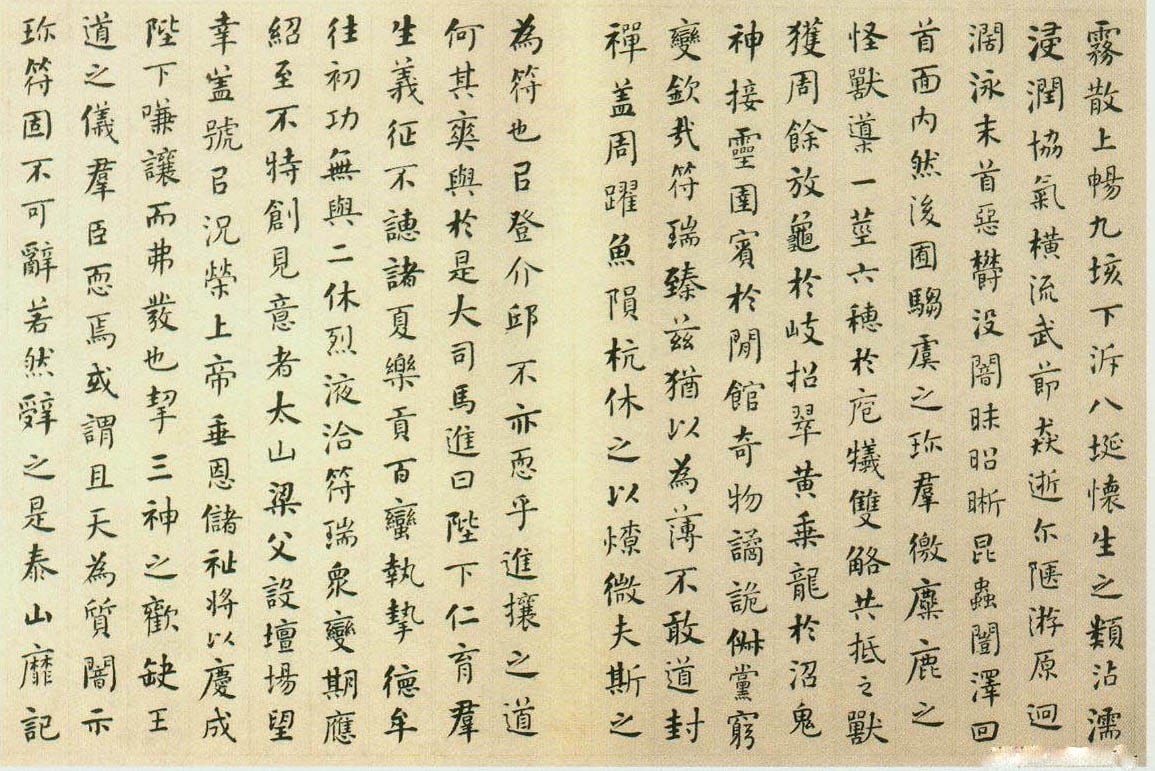 霧散上暢九垓下泝八埏懷生之類沾濡
浸潤協氣橫流武節猋逝尔陿游原迥
濶泳末首惡欝没闇昧昭晰昆蟲闓澤回
首面内然後囿騶虞之珎羣徼麋鹿之
怪獸䆃一莖六穗於庖犧雙觡共抵之獸
獲周餘放龜於岐招翠黃乗龍於沼鬼
神接靈圉賓於閒館奇物譎詭俶黨窮
變欽㦲符瑞臻茲猶以為薄不敢道封
禪盖周躍魚隕杭休之以燎微夫斯之
為符也㠯登介邱不亦恧乎進攘之道
何其爽與於是大司馬進曰陛下仁育羣
生義征不譓諸夏樂貢百蠻執摯德牟
徃初功無與二休烈液洽符瑞衆變期應
紹至不特創見意者太山梁父設壇場望
幸盖號㠯況榮上帝垂恩儲祉将以慶成
陛下嗛讓而弗發也挈三神之歡缺王
道之儀羣臣恧焉或謂且天為質闇示
珎符固不可辭若然辤之是泰山靡記